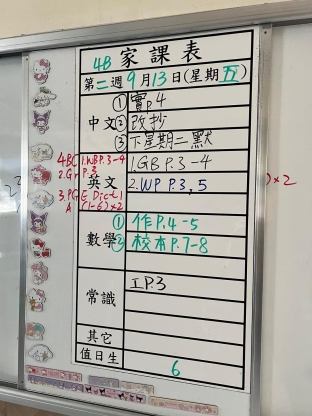 4B 家課表
第二週9月13日(星期五)
中文 ① 實p4
② 改抄
③ 下星期二默
4BC 1.WBP.3-4
2.Gr P.3
3.PG E.Dict 1
A (1-6)×2
英文 1.GB P.3-4
2.WP P.3,5
×2
數學 ① 作P.4-5
② 校本P.7-8
常識 工P.3
其它
值日生 6